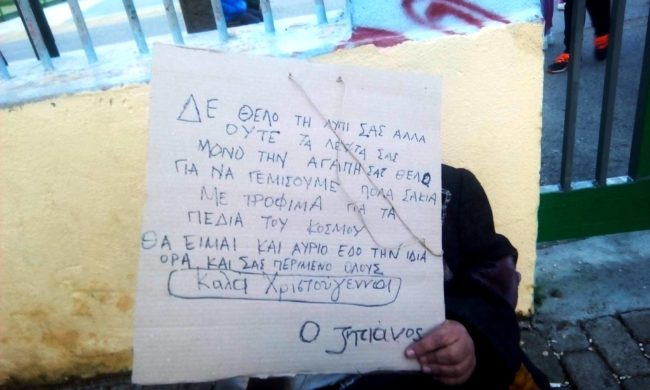 ΔΕ ΘΕΛΟ ΤΗ ΛΥΠΙ ΣΑΣ ΑΛΛΑ
ΟΥΤΕ ΤΑ ΛΕΥΤΑ ΣΑΣ
ΜΟΝΟ ΤΗΝ ΑΓΑΠΗ ΣΑΣ ΘΕΛΟ
ΓΙΑ ΝΑ ΓΕΜΙΣΟΥΜΕ ΠΟΛΑ ΣΑΚΙΑ
ΜΕ ΤΡΟΦΙΜΑ ΓΙΑ ΤΑ
ΠΕΔΙΑ ΤΟΥ ΚΟΣΜΟΥ
ΘΑ ΕΙΜΑΙ ΚΑΙ ΑΥΡΙΟ ΕΔΟ ΤΗΝ ΙΔΙΑ
ΟΡΑ ΚΑΙ ΣΑΣ ΠΕΡΙΜΕΝΟ ΟΛΟΥΣ
Καλα Χριστουγεννα
Ο